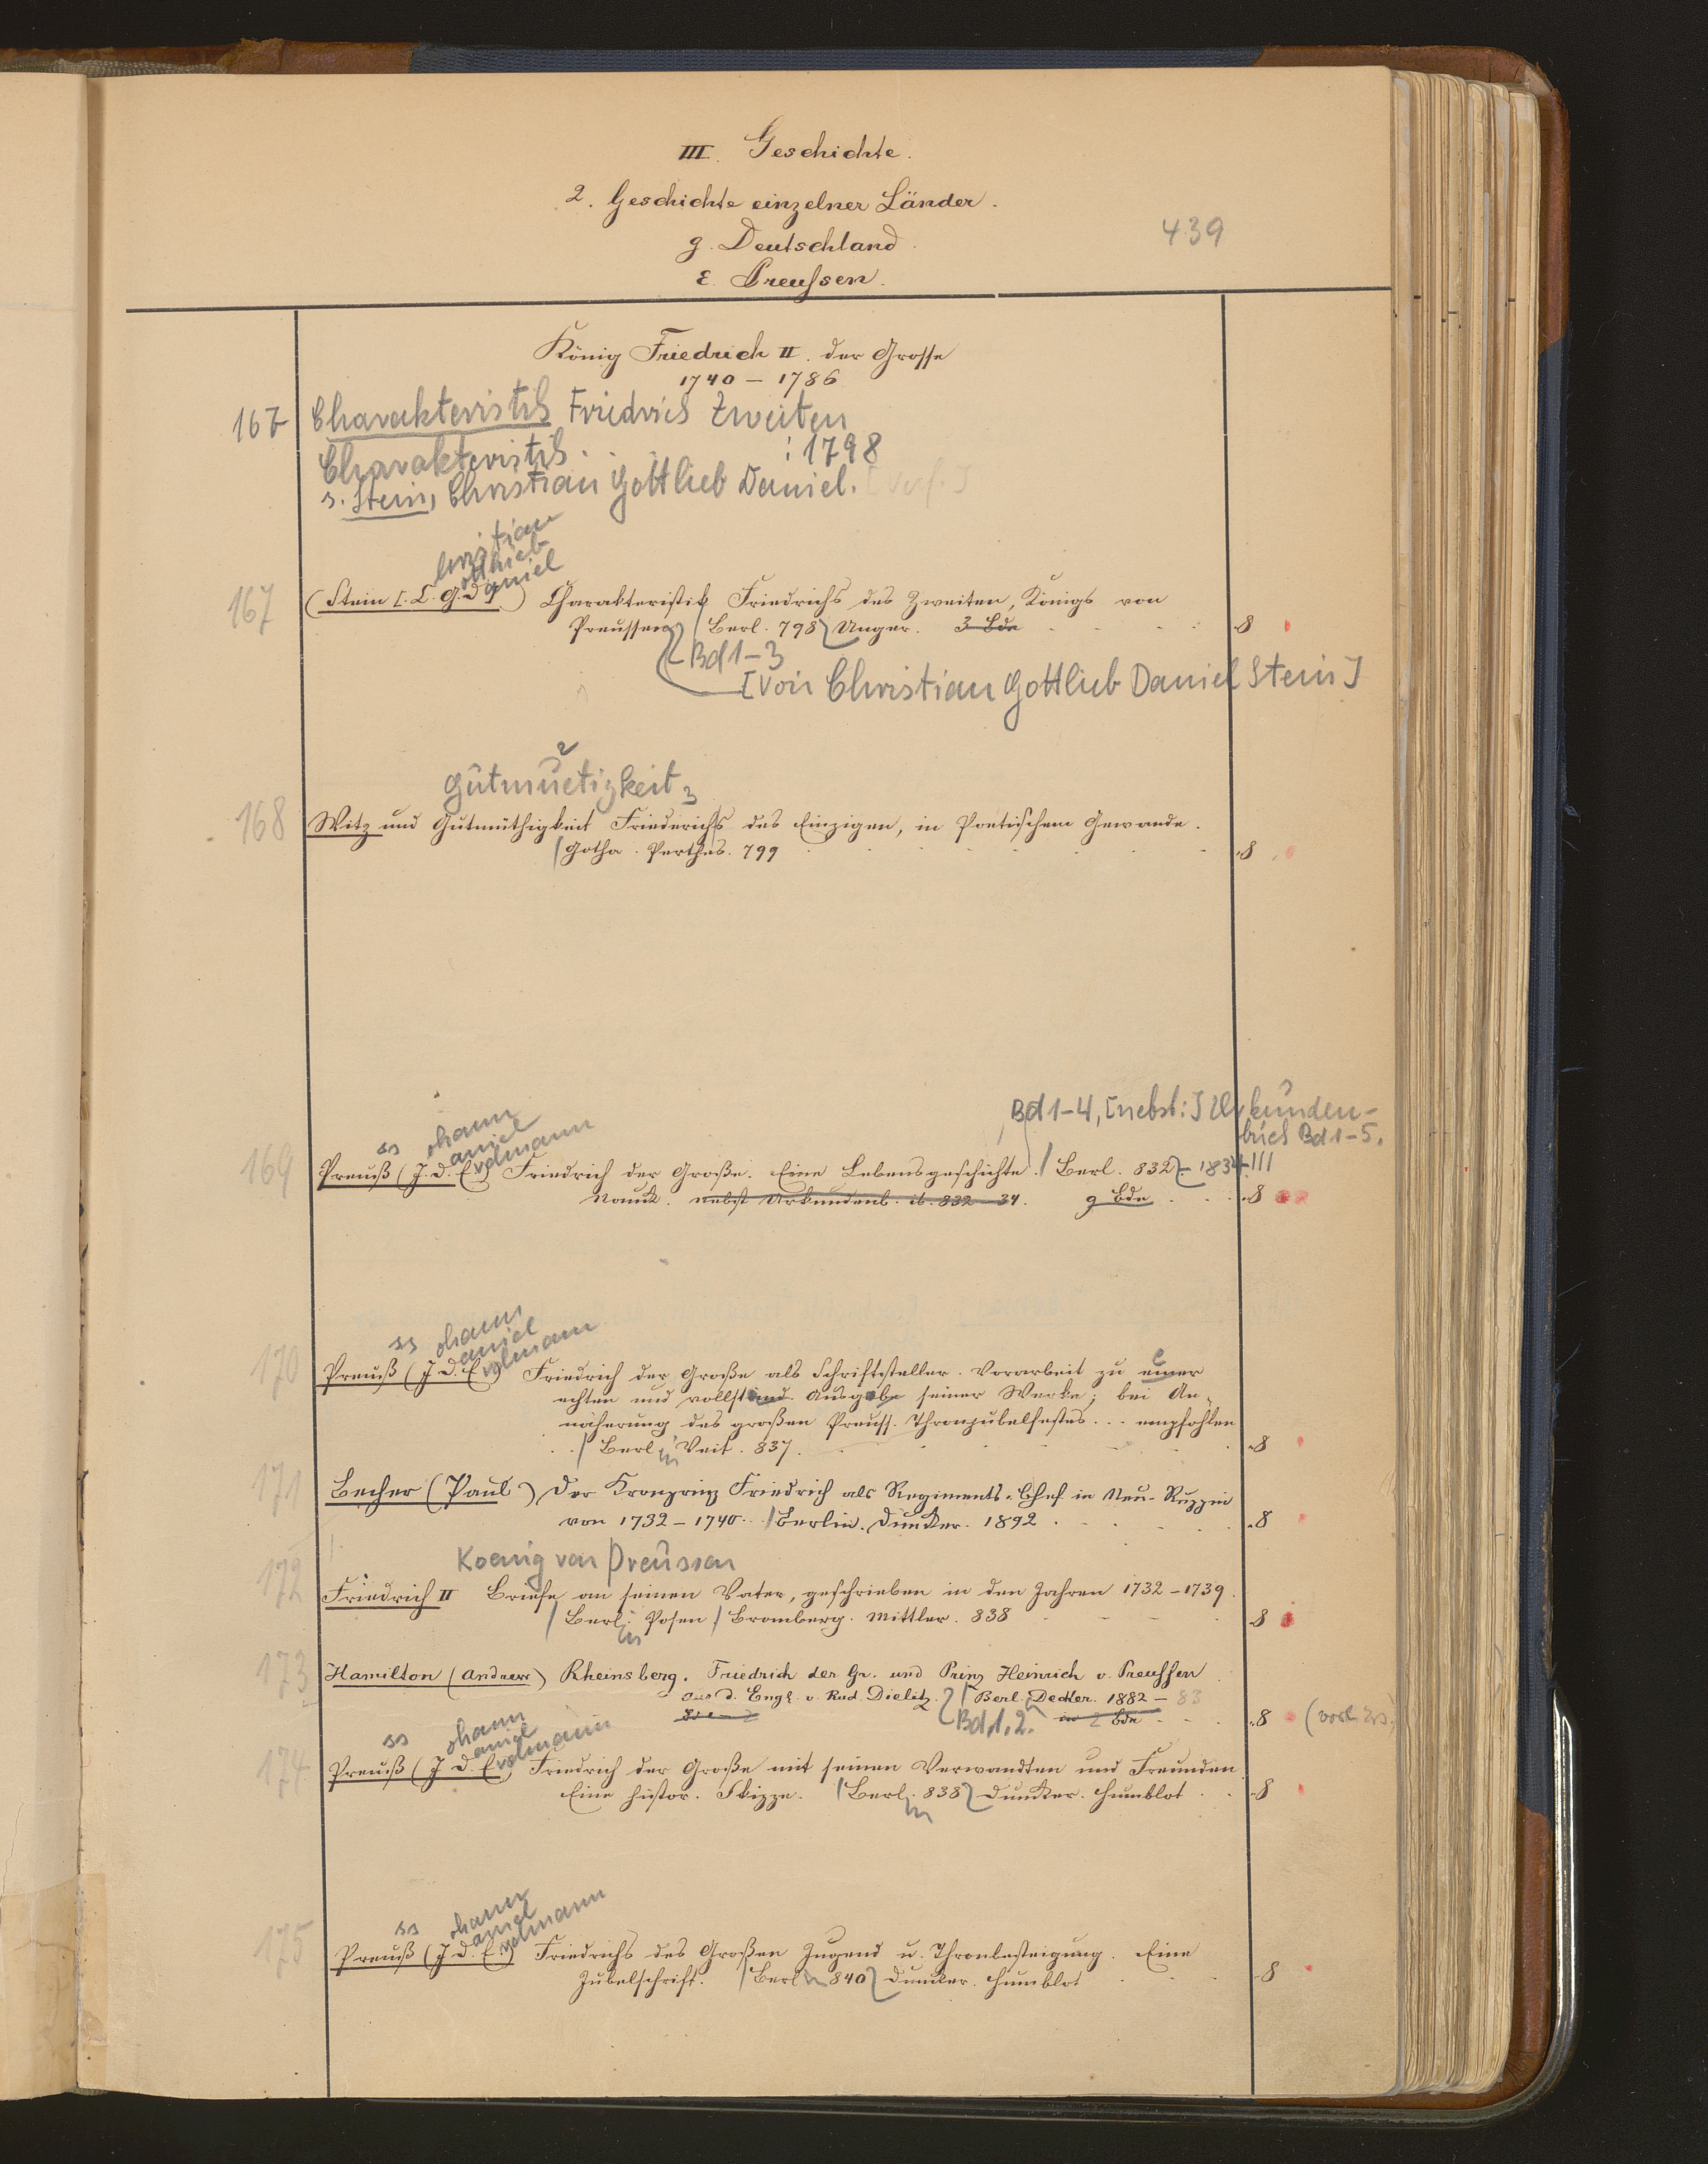 III. Geschichte.
2. Geschichte einzelner Länder.
439
g. Deutschland.
ε. Preußen.
König Friedrich II. der Grosse
1740 – 1786
167 Charakteristik Friedrich Zweiten
Charakteristik . . . : 1798
s. Stein, Christian Gottlieb Daniel. [Verf.]
hristian
ottlieb
aniel
167 (Stein [C. G. D.]) Charakteristik Friedrichs des Zweiten, Königs von
Preussen Berl. 798 Unger. 3 Bde 8
Bd 1–3
[Von Christian Gottlieb Daniel Stein]
Gutmuetigkeit
168 Witz und Gutmüthigkeit Friederichs des Einzigen, in Poetischem Gewande.
Gotha. Perthes. 799 8
Bd 1–4, [nebst:] Urkunden-
buch Bd 1–5.
ss ohann
aniel
rdmann
169 Preuß (J. D. E.) Friedrich der Große. Eine Lebensgeschichte. Berl. 832 – 1834
Nauck. nebst Urkundenb. ib. 832–34. 9 Bde 8
ss ohann
aniel
rdmann
170 Preuß (J. D. E.) Friedrich der Große als Schriftsteller. Vorarbeit zu einer
echten und vollständ. Ausgabe seiner Werke; bei An-
näherung des großen Preuss. Thronjubelfestes... empfohlen
Berlin Veit. 837. 8
171 Becher (Paul) Der Kronprinz Friedrich als Regiments-Chef in Neu-Ruppin
von 1732–1740. Berlin. Duncker. 1892 8
Koenig von Preussen
172 Friedrich II Briefe an seinen Vater, geschrieben in den Jahren 1732–1739.
Berlin Posen Bromberg. Mittler. 838 8
173 Hamilton (Andrew) Rheinsberg. Friedrich der Gr. und Prinz Heinrich v. Preußen
aus d. Engl. v. Rud. Dielitz. Berl. Decker. 1882 – 83
Bd 1. 2. in 2 Bde 8
ss ohann
aniel
rdmann
174 Preuß (J. D. E.) Friedrich der Große mit seinen Verwandten und Freunden
Eine histor. Skizze. Berlin 838 Duncker. Humblot 8
ss ohann
aniel
rdmann
175 Preuß (J. D. E.) Friedrichs des Großen Jugend u. Thronbesteigung. Eine
Jubelschrift. Berlin 840 Duncker. Humblot 8